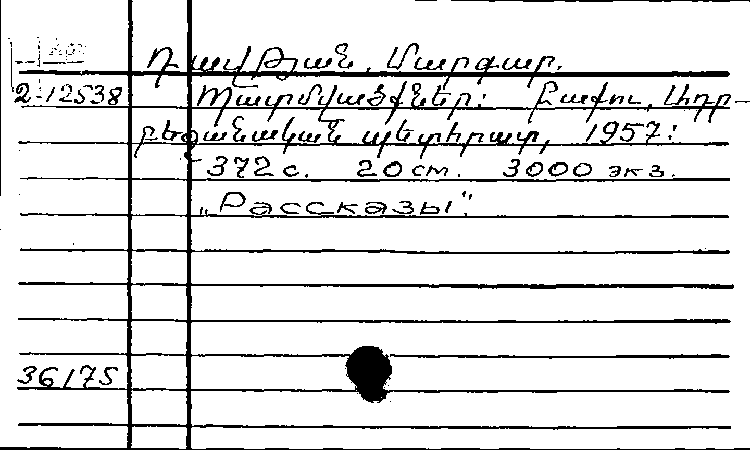 Դավթյան, Մարգար.
2-12538 Պատմվածքներ: Բաքու, Ադր-
բեջանական պետհրատ, 1957:
372 с. 20 cm. 3000 экз.
„Рассказы".
36175